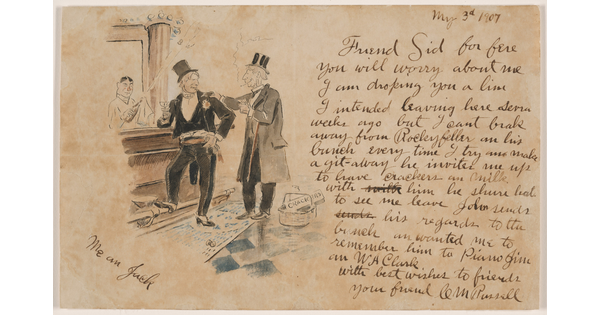 My 3d 1907
Friend Sid for fere
you will worry about me
I am droping you a line
I intended leaving here severa
weeks ago but I cant brak
away from Rockeyfeller an his
bunch every time I try and make
a git-away he invites me up
to have crackers an milk
with him he shure hed
to see me leave John sends
sends his regards to the
bunch an wanted me to
remember him to Piano Jim
an W.A Clark
with best wishes to friends
your friend CM Russell
CRACKERS
Me an Jack